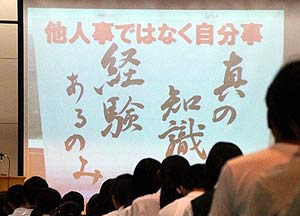 他人事ではなく自分事
真の
知識
経験
あるのみ